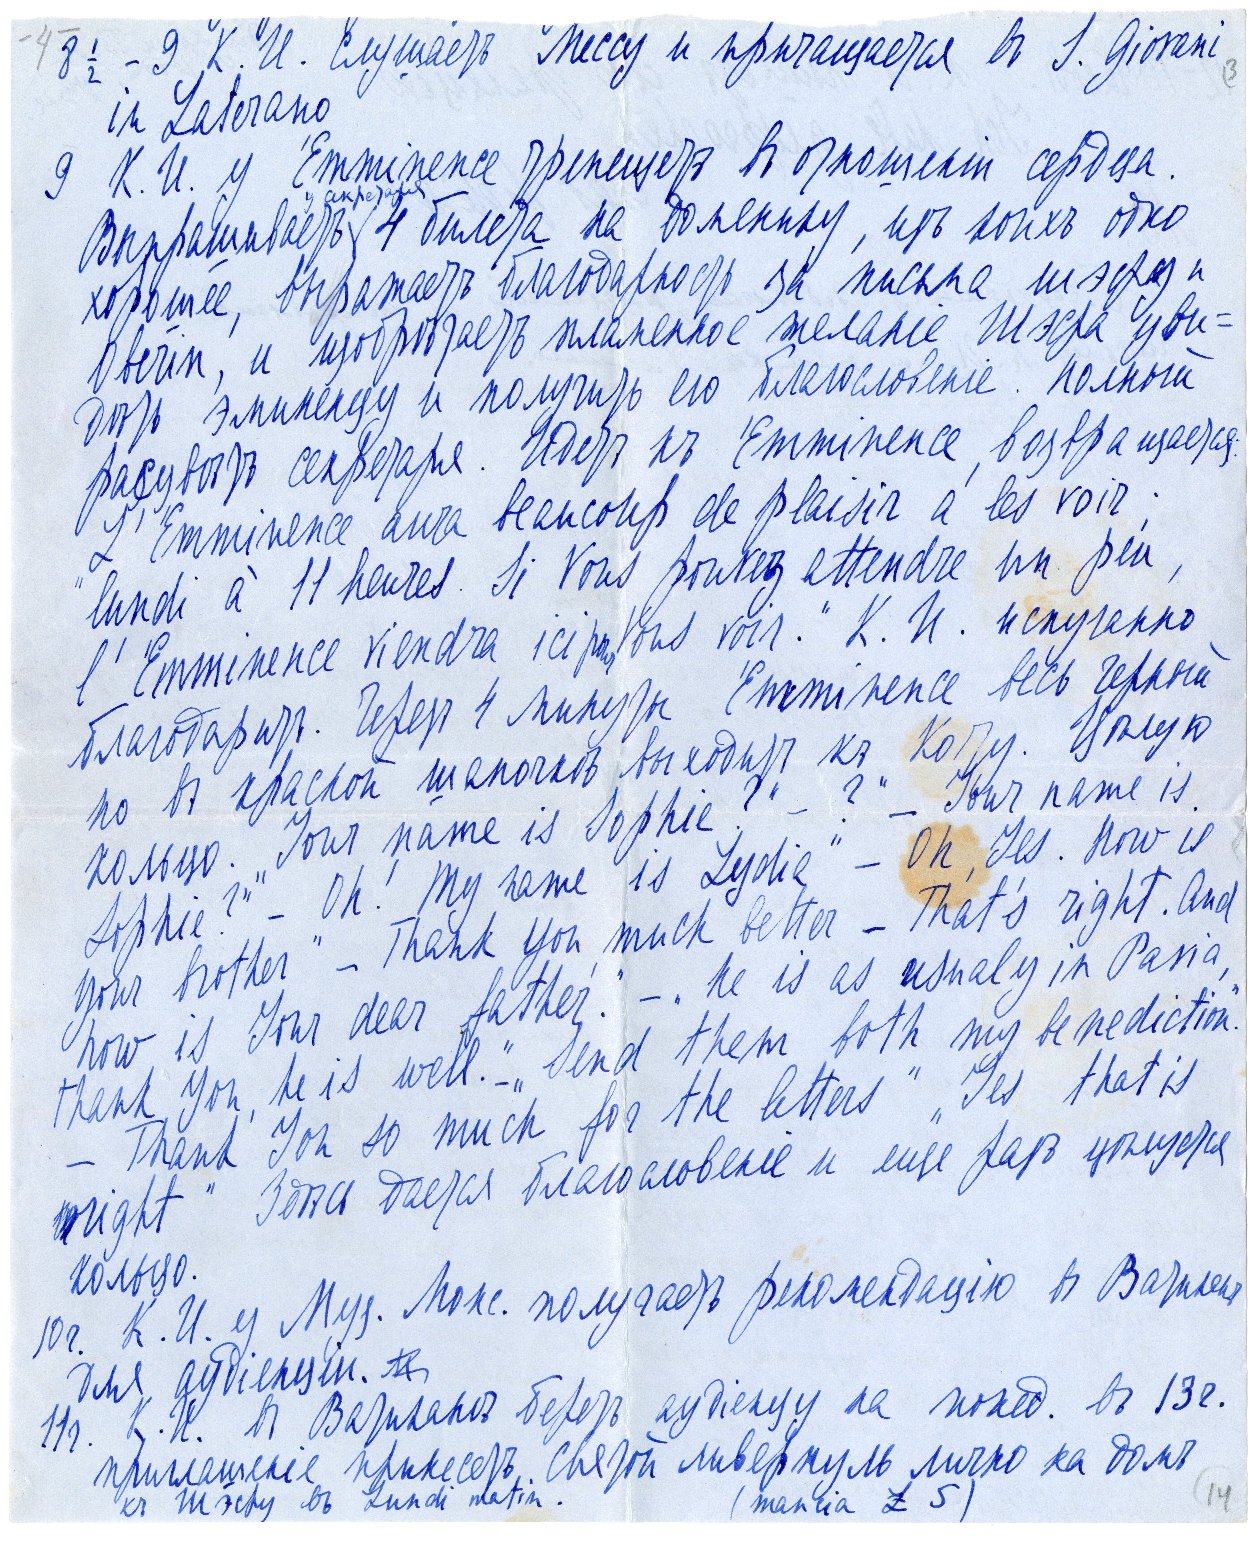 -4-
8 1/2 - 9 К. И. Слушаетъ Мессу и причащается въ S. Giovani
3
in Laterano
9 К. И. у Emminence трепещетъ въ отношеніи сердца.
у секретаря
Выпрашиваетъ 4 билета на доменику, изъ коихъ одно
хорошее, выражаетъ благодарность за письма шэфа и
Овечіи, и изображаетъ пламенное желаніе Шэфа уви=
дѣть эминенцу и получить его благословеніе. Полный
разсувѣтъ секретаря. Идетъ къ Emminence, возвращается:
"L' Emminence aura beaucoup de plaisir à les voir,
lundi à 11 heures. Si Vous pouvez attendre un peu,
l' Emminence viendra ici pour Vous voir." К. И. испуганно
благодаритъ. Черезъ 4 минуты Emminence весь черный
но въ красной шапочкѣ выходитъ къ Коту. Цѣлую
кольцо. "Your name is Sophie?" - ?" - Your name is
Sophie?" - Oh! My name is Lydia" - Oh, Yes. How is
your brother" - Thank You, much better - That's right. And
how is Your dear father." - "he is as usualy in Pavia,
thank You, he is well." - "Send them both my benediction."
- Thank You so much for the letters" "Yes that is
right" Здѣсь дается благословеніе и еще разъ цѣлуется
кольцо.
10ч. К. И. у Муз. Монс. получаетъ рекомендацію въ Ватиканъ
для аудіенціи.
11ч. К. И. въ Ватиканѣ беретъ аудіенцу на понед. въ 13ч.
приглашеніе принесетъ святой ливеркуль лично на домъ
къ Шэфу въ Lundi matin. (mancia £ 5)
14